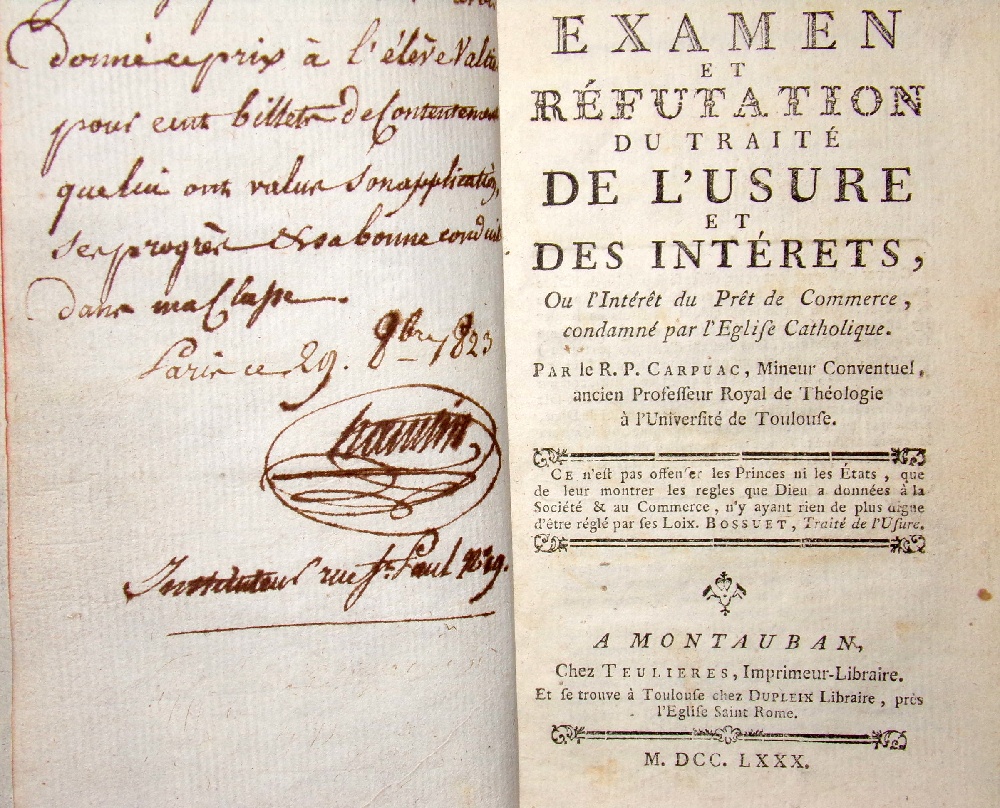 donné ce prix à l'élève
pour cent billets de Contentement
que lui ont value son application,
ses progrès & sa bonne conduit
dans ma Classe.
Paris ce 29. 8bre 1823
Instituteur rue St. Paul No. 19.
EXAMEN
ET
RÉFUTATION
DU TRAITÉ
DE L'USURE
ET
DES INTÉRETS,
Ou l'Intérêt du Prêt de Commerce,
condamné par l'Egliſe Catholique.
PAR le R. P. CARPUAC, Mineur Conventuel,
ancien Profeſſeur Royal de Théologie
à l'Univerſité de Toulouſe.
CE n'eſt pas offenſer les Princes ni les États, que
de leur montrer les regles que Dieu a données à la
Société & au Commerce, n'y ayant rien de plus digne
d'être réglé par ſes Loix. BOSSUET, Traité de l'Uſure.
A MONTAUBAN,
Chez TEULIERES, Imprimeur-Libraire.
Et ſe trouve à Toulouſe chez DUPLEIX Libraire, près
l'Egliſe Saint Rome.
M. DCC. LXXX.